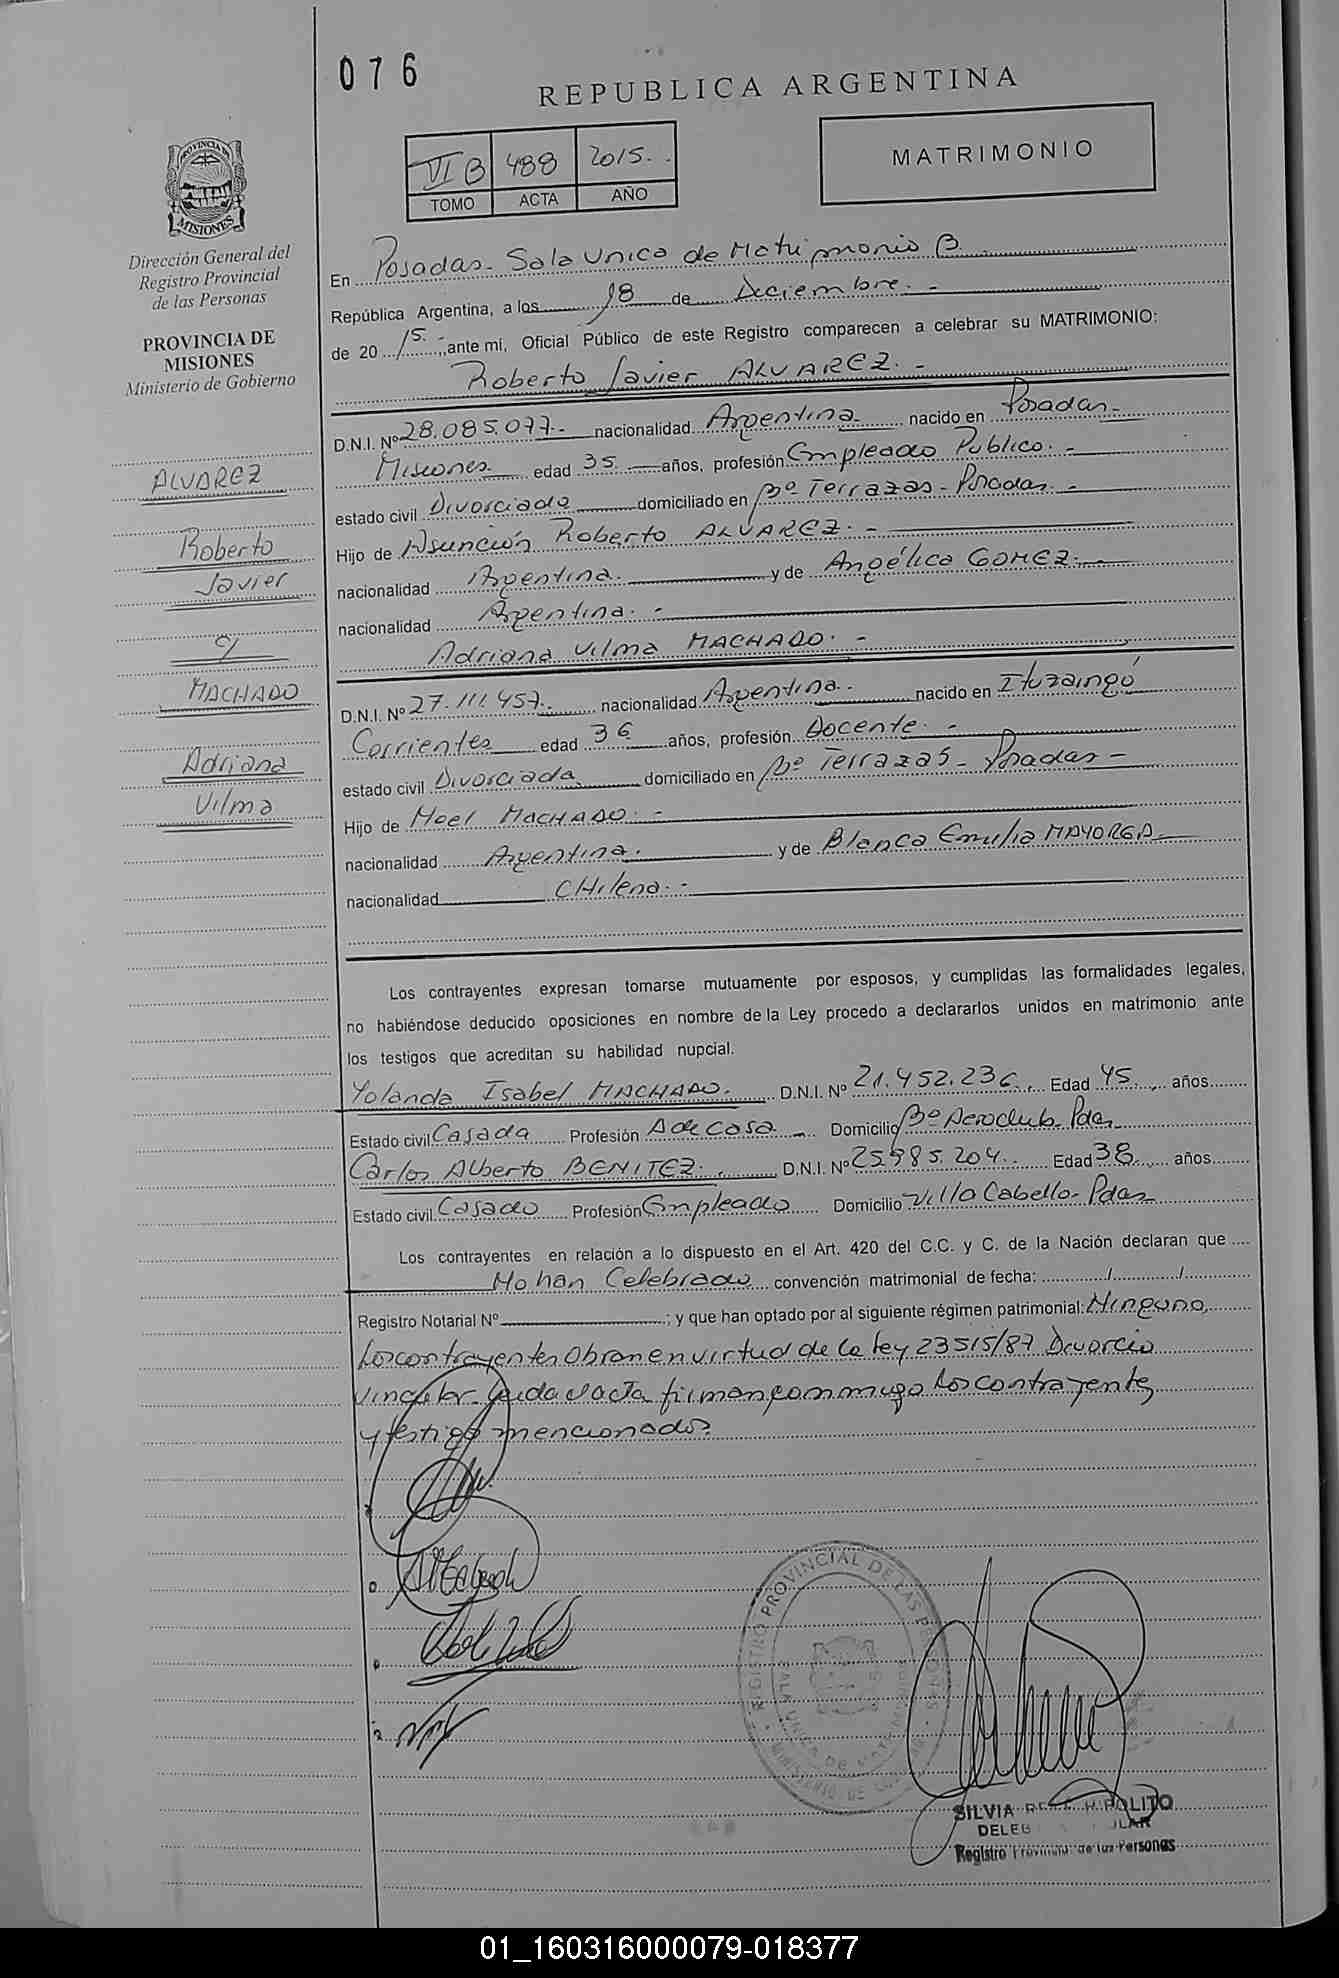 076
REPUBLICA ARGENTINA
VI B 488 2015.
TOMO ACTA AÑO
MATRIMONIO
PROVINCIA DE
MISIONES
Dirección General del
Registro Provincial
de las Personas
PROVINCIA DE
MISIONES
Ministerio de Gobierno
ALVAREZ
Roberto
Javier
c/
MACHADO
Adriana
Vilma
En Posadas - Sala Unica de Matrimonio B
República Argentina, a los 18 de Diciembre. -
de 20 15. - ,ante mí, Oficial Público de este Registro comparecen a celebrar su MATRIMONIO:
Roberto Javier ALVAREZ. -
D.N.I. Nº 28.085.077.- nacionalidad Argentina. nacido en Posadas -
Misiones edad 35 años, profesión Empleado Publico. -
estado civil Divorciado domiciliado en Bº Terrazas - Posadas. -
Hijo de Asunción Roberto ALVAREZ. -
nacionalidad Argentina. y de Angélica GOMEZ. -
nacionalidad Argentina. -
Adriana Vilma MACHADO. -
D.N.I. Nº 27.111.457. nacionalidad Argentina. nacido en Ituzaingó
Corrientes edad 36 años, profesión Docente. -
estado civil Divorciada domiciliado en Bº Terrazas - Posadas -
Hijo de MACHADO. -
nacionalidad Argentina. y de Blanca Emilia MAYORGA
nacionalidad CHilena. -
Los contrayentes expresan tomarse mutuamente por esposos, y cumplidas las formalidades legales,
no habiéndose deducido oposiciones en nombre de la Ley procedo a declararlos unidos en matrimonio ante
los testigos que acreditan su habilidad nupcial.
Yolanda Isabel MACHADO. D.N.I. Nº 21.452.236. Edad 45 años
Estado civil Casada Profesión A de casa Domicilio Bº Aeroclub - Pdas
Carlos Alberto BENITEZ. D.N.I. Nº 25.985.204. Edad 38 años
Estado civil Casado Profesión Empleado Domicilio Villa Cabello - Pdas
Los contrayentes en relación a lo dispuesto en el Art. 420 del C.C. y C. de la Nación declaran que
No han Celebrado convención matrimonial de fecha: / /
Registro Notarial Nº ; y que han optado por al siguiente régimen patrimonial: Ninguno
Los contrayentes Obran en virtud de la ley 23515/87 Divorcio
vincular. Leida el acta firman conmigo los contrayentes
y testigos mencionados
REGISTRO PROVINCIAL DE LAS PERSONAS
SALA UNICA DE MATRIMONIOS
MINISTERIO DE
SILVIA HIPOLITO
Registro Provincial de las Personas
01_160316000079-018377